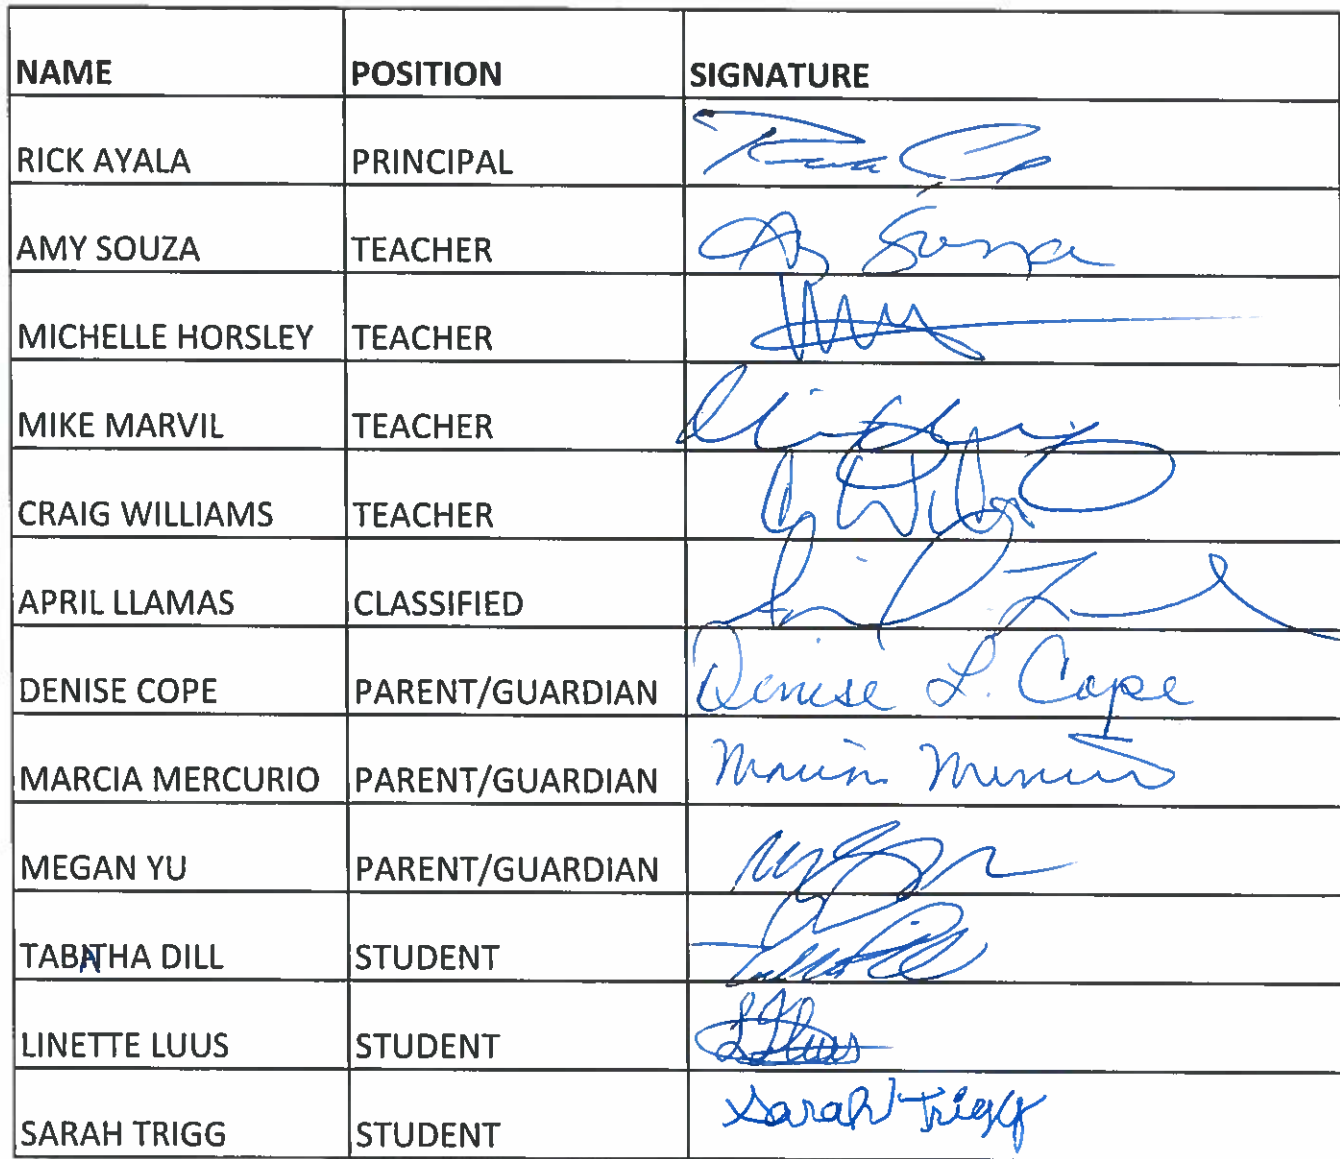 NAME POSITION SIGNATURE
RICK AYALA PRINCIPAL
AMY SOUZA TEACHER Amy Souza
MICHELLE HORSLEY TEACHER
MIKE MARVIL TEACHER
CRAIG WILLIAMS TEACHER
APRIL LLAMAS CLASSIFIED
DENISE COPE PARENT/GUARDIAN Denise L. Cope
MARCIA MERCURIO PARENT/GUARDIAN
MEGAN YU PARENT/GUARDIAN
TABATHA DILL STUDENT
LINETTE LUUS STUDENT
SARAH TRIGG STUDENT Sarah Trigg